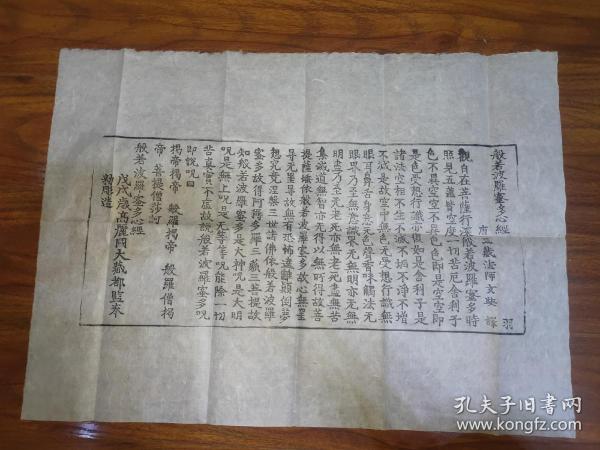 般若波羅蜜多心經 羽
唐三藏法師玄奘 譯
觀自在菩薩行深般若波羅蜜多時
照見五蘊皆空度一切苦厄舍利子
色不異空空不異色色即是空空即
是色受想行識亦復如是舍利子是
諸法空相不生不滅不垢不淨不增
不減是故空中無色无受想行識無
眼耳鼻舌身意无色聲香味觸法无
眼界乃至無意識界无無明亦无無
明盡乃至无老死亦無老死盡無苦
集滅道無智亦无得以無所得故菩
提薩埵依般若波羅蜜多故心無罣
㝵无罣㝵故無有恐怖遠離顛倒夢
想究竟涅槃三世諸佛依般若波羅
蜜多故得阿耨多羅三藐三菩提故
知般若波羅蜜多是大神呪是大明
呪是無上呪是无等等呪能除一切
苦真實不虛故說般若波羅蜜多呪
即說呪曰
揭帝揭帝 般羅揭帝 般羅僧揭
帝 菩提僧莎訶
般若波羅蜜多心經
戊戌歲高麗國大藏都監奉
勑彫造
孔夫子旧书网
www.kongfz.com